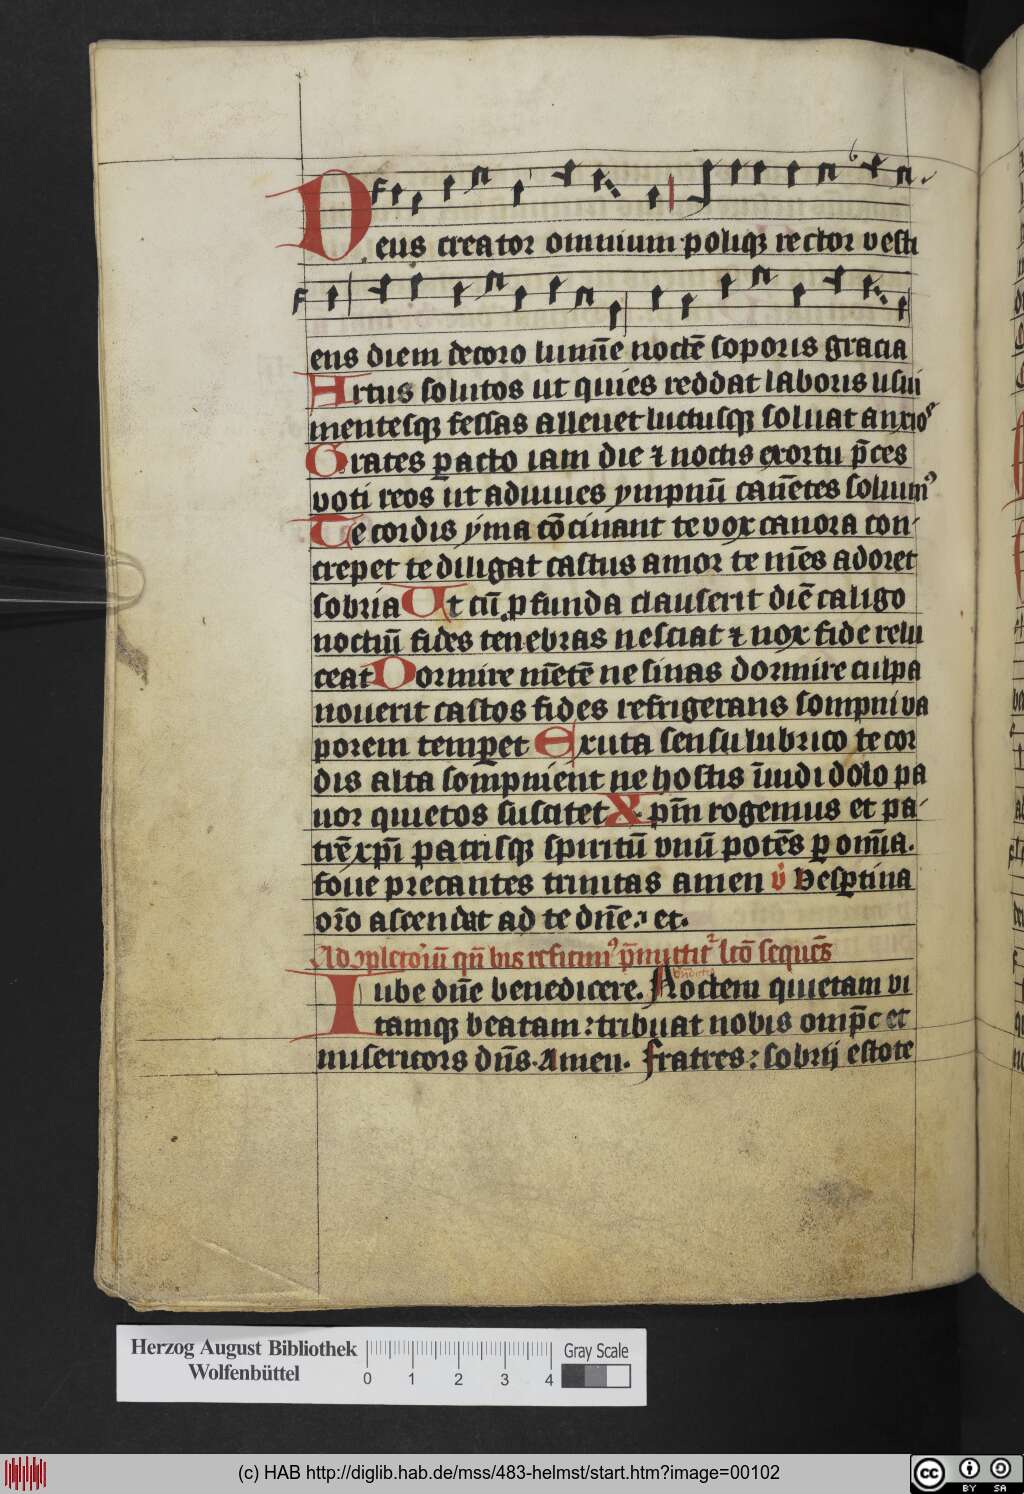 Deus creator omnium poliq₃ rector vesti
ens diem decoro lumīe noctē soporis gracia
Artus solutos ut quies reddat laboris usui
mentesq₃ fessas alleuet luctusq₃ soluat anxioˢ
Grates ꝑacto iam die ⁊ noctis exortu p̄ces
voti reos ut adiuues ympnū canētes soluimꝰ
Te cordis yma cōcinant te vox canora con-
crepet te diligat castus amor te mēs adoret
sobria Ut cū ꝓfunda clauserit diē caligo
noctiū fides tenebras nesciat ⁊ nox fide relu
ceat Dormire mētē ne sinas dormire culpa
nouerit castos fides refrigerans sompni va
porem temꝑet Exuta sensu lubrico te cor
dis alta sompnient ne hostis īuidi dolo pa
uor quietos suscitet Xp̄m rogemus et pa-
trē xp̄i patrisq₃ spiritū vnū potēs ꝑ om̄ia.
foue precantes trinitas amen v̇ Vesꝑtina
or̄o ascendat ad te dn̄e: et.
Ad ꝯpletoriū qn̄ bis reficimꝰ p̄mittitᷣ lcō sequēs
Iube dn̄e benedicere. Noctem quietam vi
tamq₃ beatam: tribuat nobis omp̄c et
misericors dn̄s. Amen. Fratres: sobrij estote
Herzog August Bibliothek
Wolfenbüttel
0 1 2 3 4
Gray Scale
(c) HAB http://diglib.hab.de/mss/483-helmst/start.htm?image=00102
cc BY SA